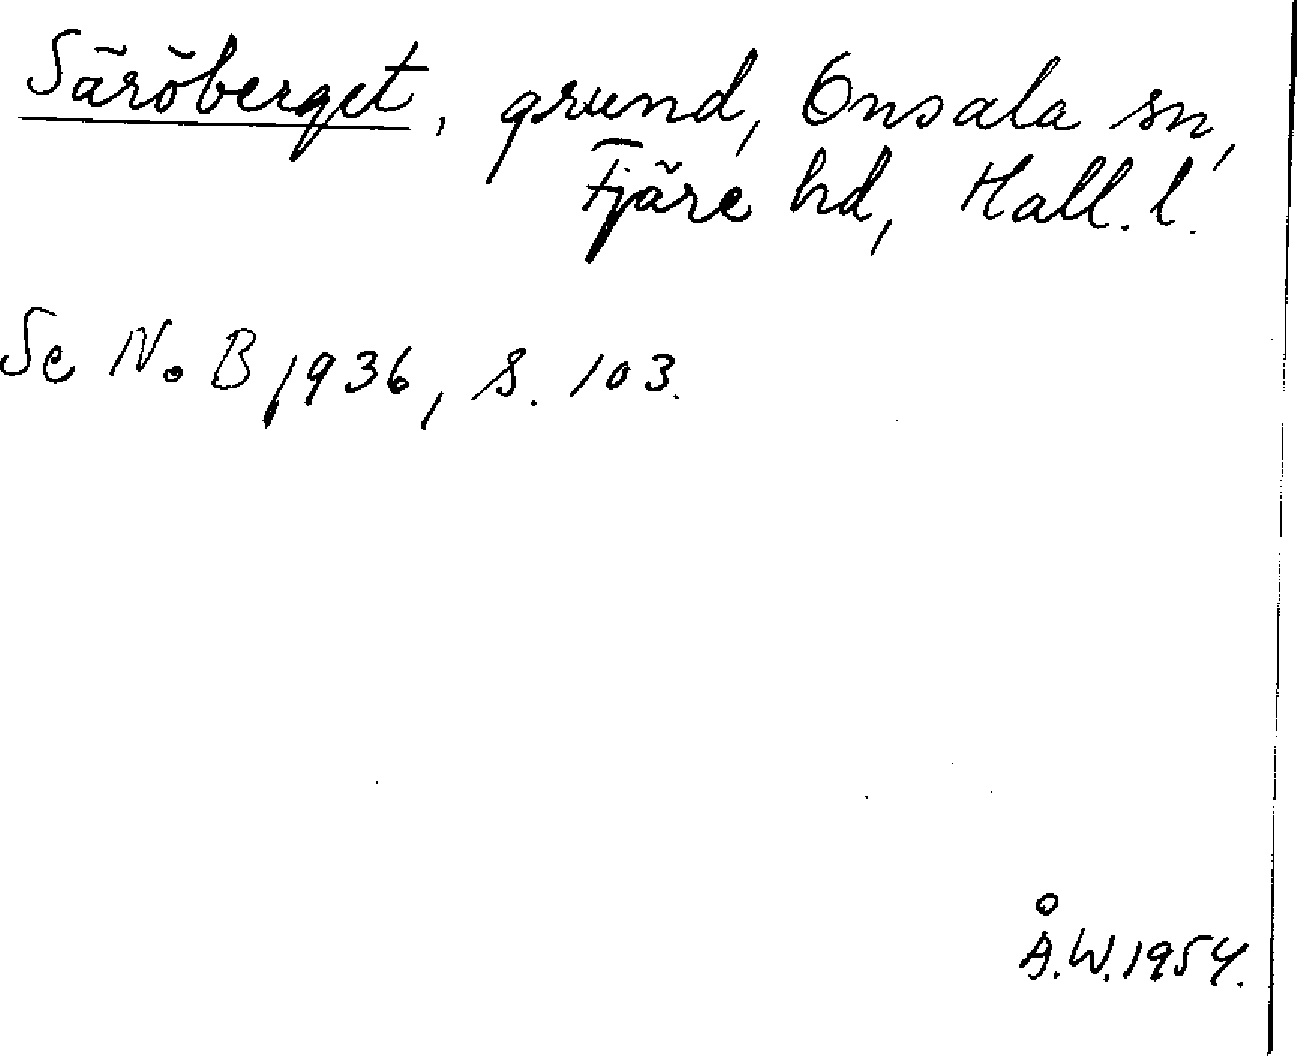 Säröberget, grund, Onsala sn,
Fjäre hd, Hall. l.
Se N.o B 1936, s. 103.
Å.W.1954.